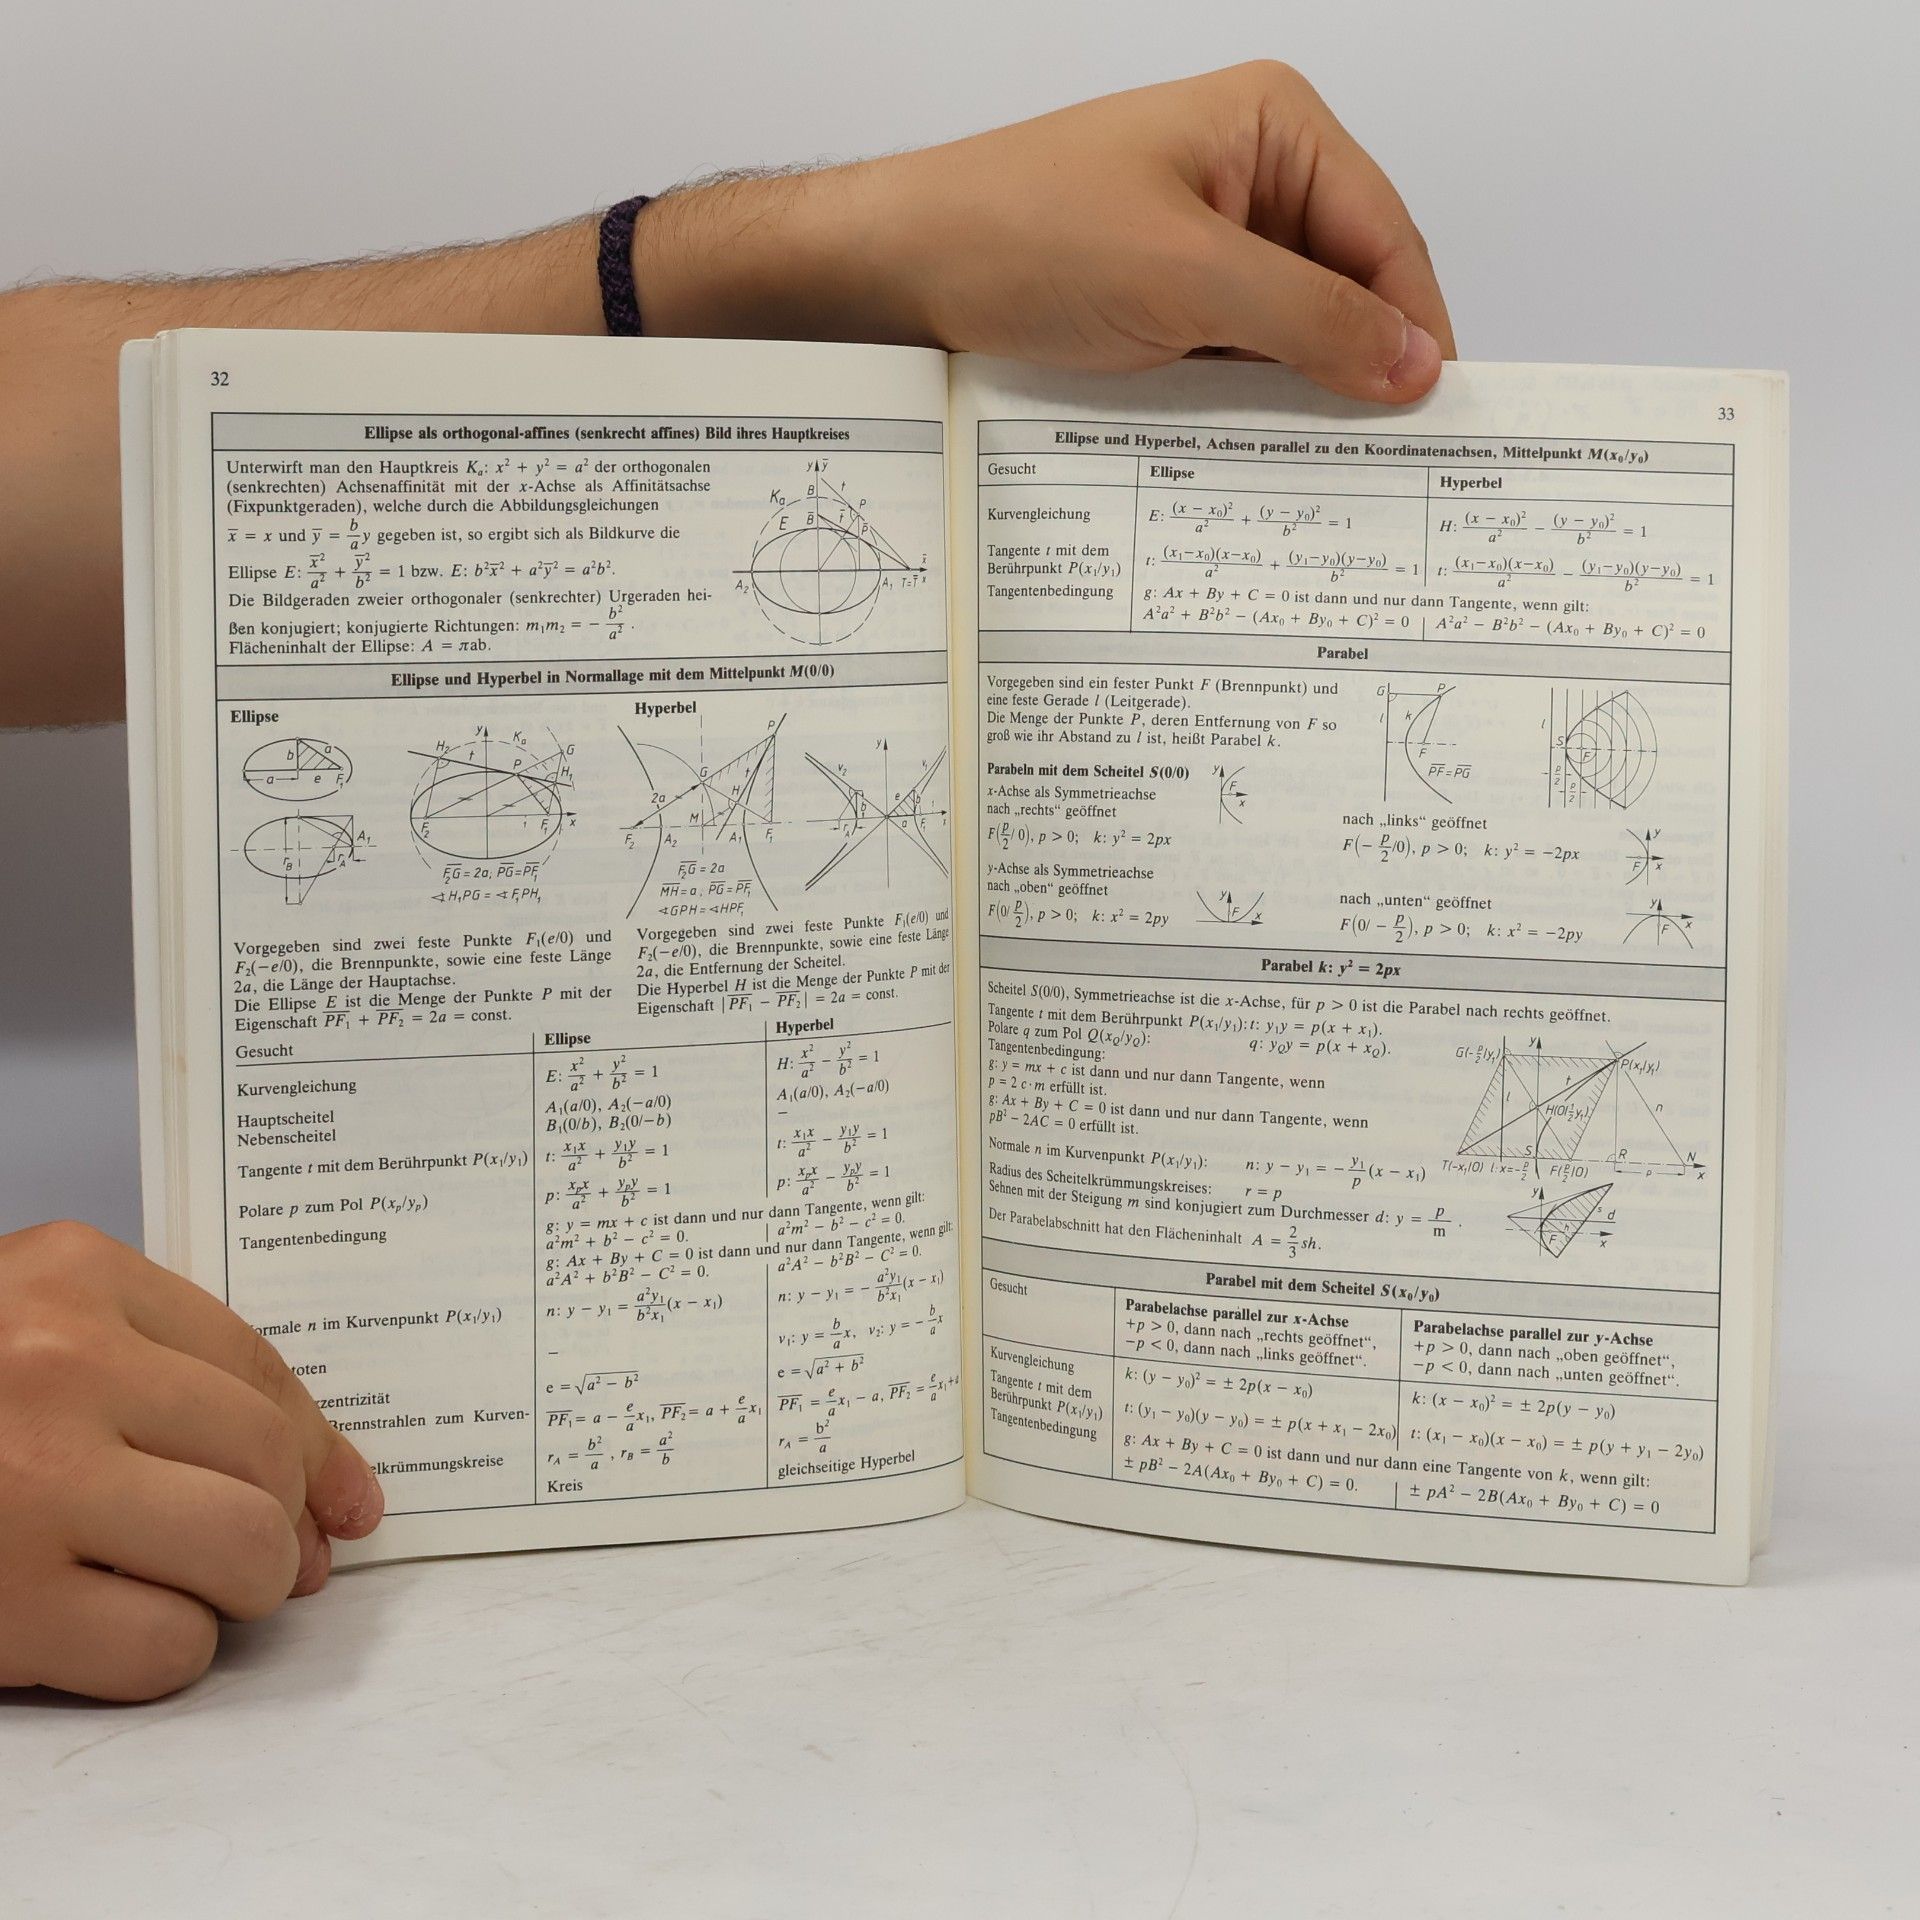 32
Ellipse als orthogonal-affines (senkrecht affines) Bild ihres Hauptkreises
Unterwirft man den Hauptkreis Kₐ: x² + y² = a² der orthogonalen
(senkrechten) Achsenaffinität mit der x-Achse als Affinitätsachse
(Fixpunktgeraden), welche durch die Abbildungsgleichungen
x̅ = x und y̅ = b/a y gegeben ist, so ergibt sich als Bildkurve die
Ellipse E: x̅²/a² + y̅²/b² = 1 bzw. E: b²x̅² + a²y̅² = a²b².
Die Bildgeraden zweier orthogonaler (senkrechter) Urgeraden hei-
ßen konjugiert; konjugierte Richtungen: m₁m₂ = − b²/a² .
Flächeninhalt der Ellipse: A = πab.
y y̅
Kₐ B t P
E B̅ t̅ P̅
A₂ A₁ T=T̅ x̅ x
Ellipse und Hyperbel in Normallage mit dem Mittelpunkt M(0/0)
Ellipse
Hyperbel
b a
a e F₁
r_B r_A A₁
y Kₐ G
H₂ t P H₁
F₂ F₁ x
F₂G = 2a; PG=PF₁
∢H₁PG = ∢F₁PH₁
P
G t
2a H
M
F₂ A₂ A₁ F₁
F₂G = 2a
MH=a, PG=PF₁
∢GPH=∢HPF₁
y
v₂ v₁
e b
r_A a F₁ x
Vorgegeben sind zwei feste Punkte F₁(e/0) und
F₂(−e/0), die Brennpunkte, sowie eine feste Länge
2a, die Länge der Hauptachse.
Die Ellipse E ist die Menge der Punkte P mit der
Eigenschaft PF₁ + PF₂ = 2a = const.
Vorgegeben sind zwei feste Punkte F₁(e/0) und
F₂(−e/0), die Brennpunkte, sowie eine feste Länge
2a, die Entfernung der Scheitel.
Die Hyperbel H ist die Menge der Punkte P mit der
Eigenschaft |PF₁ − PF₂| = 2a = const.
Gesucht Ellipse Hyperbel
Kurvengleichung E: x²/a² + y²/b² = 1 H: x²/a² − y²/b² = 1
Hauptscheitel A₁(a/0), A₂(−a/0) A₁(a/0), A₂(−a/0)
Nebenscheitel B₁(0/b), B₂(0/−b) −
Tangente t mit dem Berührpunkt P(x₁/y₁) t: x₁x/a² + y₁y/b² = 1 t: x₁x/a² − y₁y/b² = 1
Polare p zum Pol P(xₚ/yₚ) p: xₚx/a² + yₚy/b² = 1 p: xₚx/a² − yₚy/b² = 1
Tangentenbedingung g: y = mx + c ist dann und nur dann Tangente, wenn gilt:
a²m² + b² − c² = 0. a²m² − b² − c² = 0.
g: Ax + By + C = 0 ist dann und nur dann Tangente, wenn gilt:
a²A² + b²B² − C² = 0. a²A² − b²B² − C² = 0.
ormale n im Kurvenpunkt P(x₁/y₁) n: y − y₁ = a²y₁/b²x₁ (x − x₁) n: y − y₁ = − a²y₁/b²x₁ (x − x₁)
toten − v₁: y = b/a x, v₂: y = − b/a x
zentrizität e = √(a² − b²) e = √(a² + b²)
Brennstrahlen zum Kurven- PF₁ = a − e/a x₁, PF₂ = a + e/a x₁ PF₁ = e/a x₁ − a, PF₂ = e/a x₁ + a
elkrümmungskreise r_A = b²/a , r_B = a²/b r_A = b²/a
Kreis gleichseitige Hyperbel
33
Ellipse und Hyperbel, Achsen parallel zu den Koordinatenachsen, Mittelpunkt M(x₀/y₀)
Gesucht Ellipse Hyperbel
Kurvengleichung E: (x − x₀)²/a² + (y − y₀)²/b² = 1 H: (x − x₀)²/a² − (y − y₀)²/b² = 1
Tangente t mit dem
Berührpunkt P(x₁/y₁) t: (x₁−x₀)(x−x₀)/a² + (y₁−y₀)(y−y₀)/b² = 1 t: (x₁−x₀)(x−x₀)/a² − (y₁−y₀)(y−y₀)/b² = 1
Tangentenbedingung g: Ax + By + C = 0 ist dann und nur dann Tangente, wenn gilt:
A²a² + B²b² − (Ax₀ + By₀ + C)² = 0 A²a² − B²b² − (Ax₀ + By₀ + C)² = 0
Parabel
Vorgegeben sind ein fester Punkt F (Brennpunkt) und
eine feste Gerade l (Leitgerade).
Die Menge der Punkte P, deren Entfernung von F so
groß wie ihr Abstand zu l ist, heißt Parabel k.
G P
l k
F
PF=PG
l
S F
p/2 p/2
Parabeln mit dem Scheitel S(0/0)
x-Achse als Symmetrieachse
nach „rechts“ geöffnet nach „links“ geöffnet
F(p/2/0), p > 0; k: y² = 2px F(− p/2/0), p > 0; k: y² = −2px
y F x
y F x
y-Achse als Symmetrieachse
nach „oben“ geöffnet nach „unten“ geöffnet
F(0/ p/2), p > 0; k: x² = 2py F(0/ − p/2), p > 0; k: x² = −2py
y F x
y F x
Parabel k: y² = 2px
Scheitel S(0/0), Symmetrieachse ist die x-Achse, für p > 0 ist die Parabel nach rechts geöffnet.
Tangente t mit dem Berührpunkt P(x₁/y₁): t: y₁y = p(x + x₁).
Polare q zum Pol Q(x_Q/y_Q): q: y_Qy = p(x + x_Q).
Tangentenbedingung:
g: y = mx + c ist dann und nur dann Tangente, wenn
p = 2 c·m erfüllt ist.
g: Ax + By + C = 0 ist dann und nur dann Tangente, wenn
pB² − 2AC = 0 erfüllt ist.
Normale n im Kurvenpunkt P(x₁/y₁): n: y − y₁ = − y₁/p (x − x₁)
Radius des Scheitelkrümmungskreises: r = p
Sehnen mit der Steigung m sind konjugiert zum Durchmesser d: y = p/m .
Der Parabelabschnitt hat den Flächeninhalt A = 2/3 sh.
G(−p/2/y₁) y P(x₁/y₁)
t
l H(0/½y₁) n
S R N
T(−x₁/0) l: x=−p/2 F(p/2/0) p x
y s d h F x
Parabel mit dem Scheitel S(x₀/y₀)
Gesucht Parabelachse parallel zur x-Achse Parabelachse parallel zur y-Achse
+p > 0, dann nach „rechts geöffnet“, +p > 0, dann nach „oben geöffnet“,
−p < 0, dann nach „links geöffnet“. −p < 0, dann nach „unten geöffnet“.
Kurvengleichung k: (y − y₀)² = ± 2p(x − x₀) k: (x − x₀)² = ± 2p(y − y₀)
Tangente t mit dem
Berührpunkt P(x₁/y₁) t: (y₁ − y₀)(y − y₀) = ± p(x + x₁ − 2x₀) t: (x₁ − x₀)(x − x₀) = ± p(y + y₁ − 2y₀)
Tangentenbedingung g: Ax + By + C = 0 ist dann und nur dann eine Tangente von k, wenn gilt:
± pB² − 2A(Ax₀ + By₀ + C) = 0. ± pA² − 2B(Ax₀ + By₀ + C) = 0